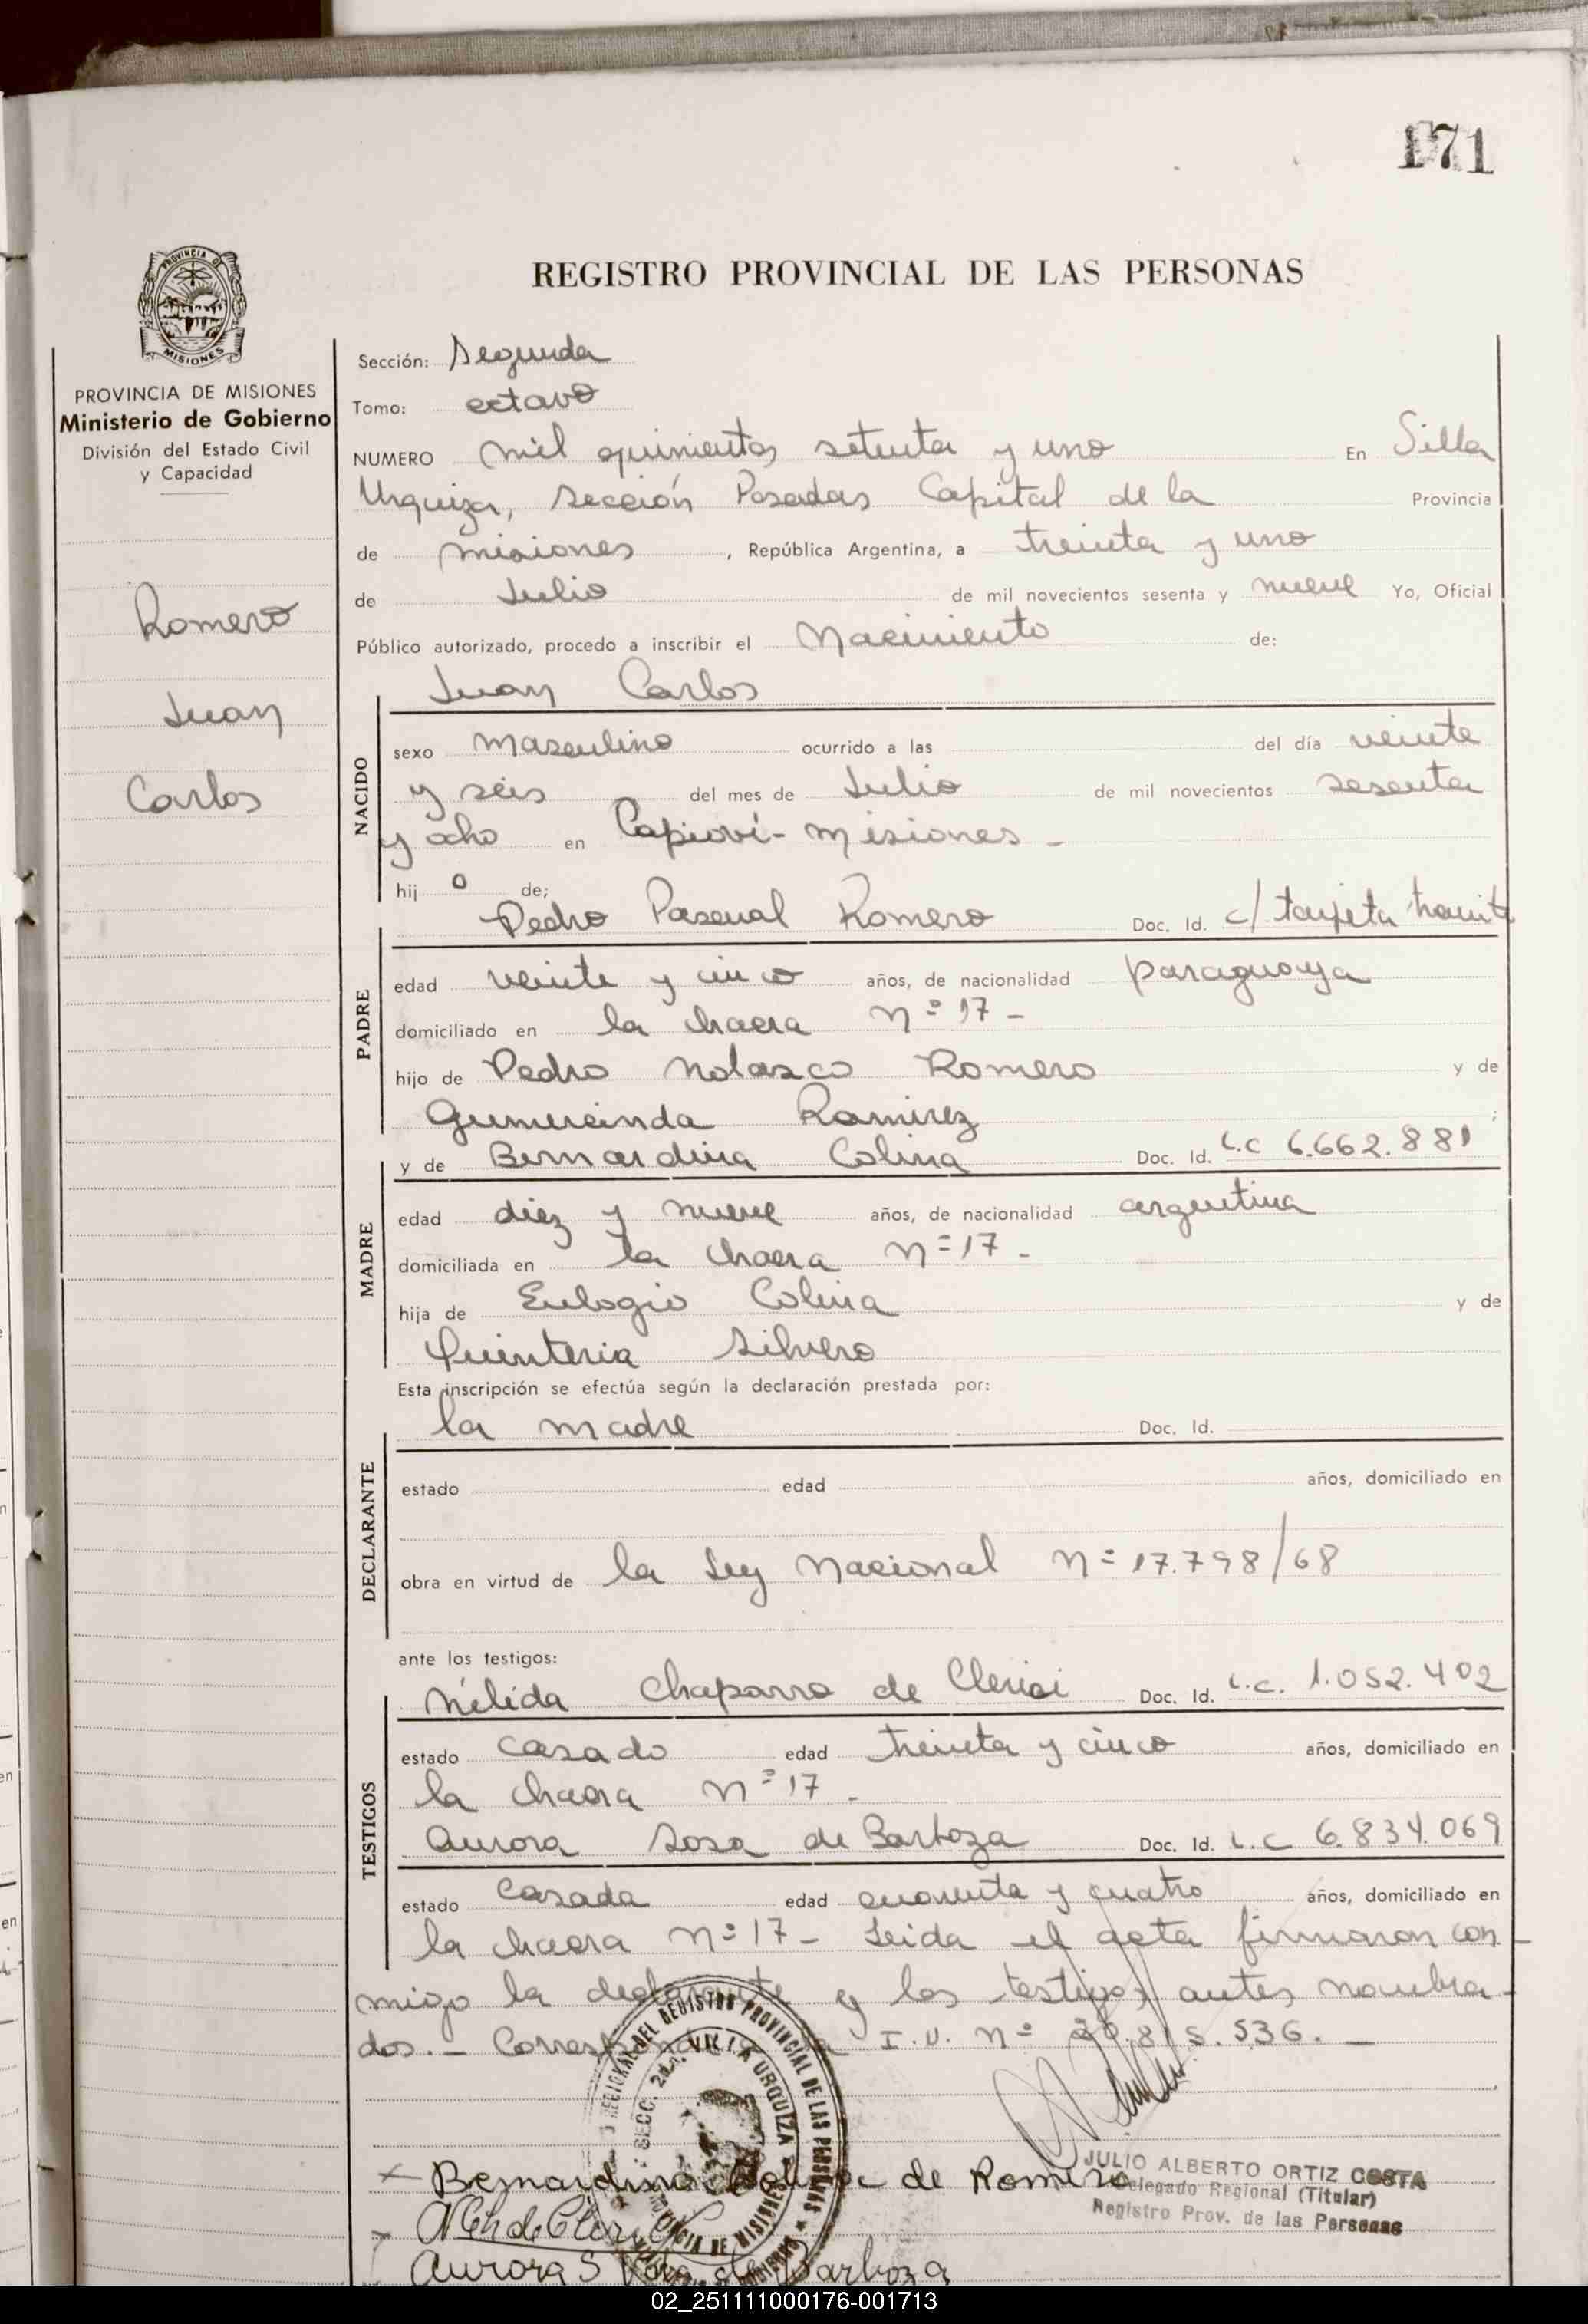 171
PROVINCIA DE MISIONES
PROVINCIA DE MISIONES
Ministerio de Gobierno
División del Estado Civil
y Capacidad
Romero
Juan
Carlos
REGISTRO PROVINCIAL DE LAS PERSONAS
Sección: Segunda
Tomo: octavo
NUMERO mil quinientos setenta y uno En Villa
Urquiza, Sección Posadas Capital de la Provincia
de misiones, República Argentina, a treinta y uno
de Julio de mil novecientos sesenta y nueve Yo, Oficial
Público autorizado, procedo a inscribir el Nacimiento de:
Juan Carlos
NACIDO
sexo masculino ocurrido a las del día veinte
y seis del mes de Julio de mil novecientos sesenta
y ocho en Capioví - misiones -
hij o de;
Pedro Pascual Romero Doc. Id. c/ tarjeta tramite
PADRE
edad veinte y cinco años, de nacionalidad paraguaya
domiciliado en la chacra nº 17 -
hijo de Pedro Nolasco Romero y de
Gumercinda Ramirez ;
y de Bernardina Colina Doc. Id. L.C 6.662.881
MADRE
edad diez y nueve años, de nacionalidad argentina
domiciliada en la chacra nº 17 -
hija de Eulogio Colina y de
Quinteria Silvero
Esta inscripción se efectúa según la declaración prestada por:
la madre Doc. Id.
DECLARANTE
estado edad años, domiciliado en
obra en virtud de la Ley Nacional nº 17.798/68
ante los testigos:
Nélida Chaparro de Clerici Doc. Id. L.C. 1.052.402
TESTIGOS
estado casado edad treinta y cinco años, domiciliado en
la chacra nº 17 -
Aurora Sosa de Barboza Doc. Id. L.C 6.834.069
estado casada edad cuarenta y cuatro años, domiciliado en
la chacra nº 17 - Leida el acta firmaron con
migo la declarante y los testigos antes nombra-
dos. - I.U. nº .815.536. -
REGIONAL DEL REGISTRO PROVINCIAL DE LAS PERSONAS
SECC. 2da. VILLA URQUIZA
Bernardina Colina de Romero
JULIO ALBERTO ORTIZ COSTA
Delegado Regional (Titular)
Registro Prov. de las Personas
Aurora S de Barboza
02_251111000176-001713